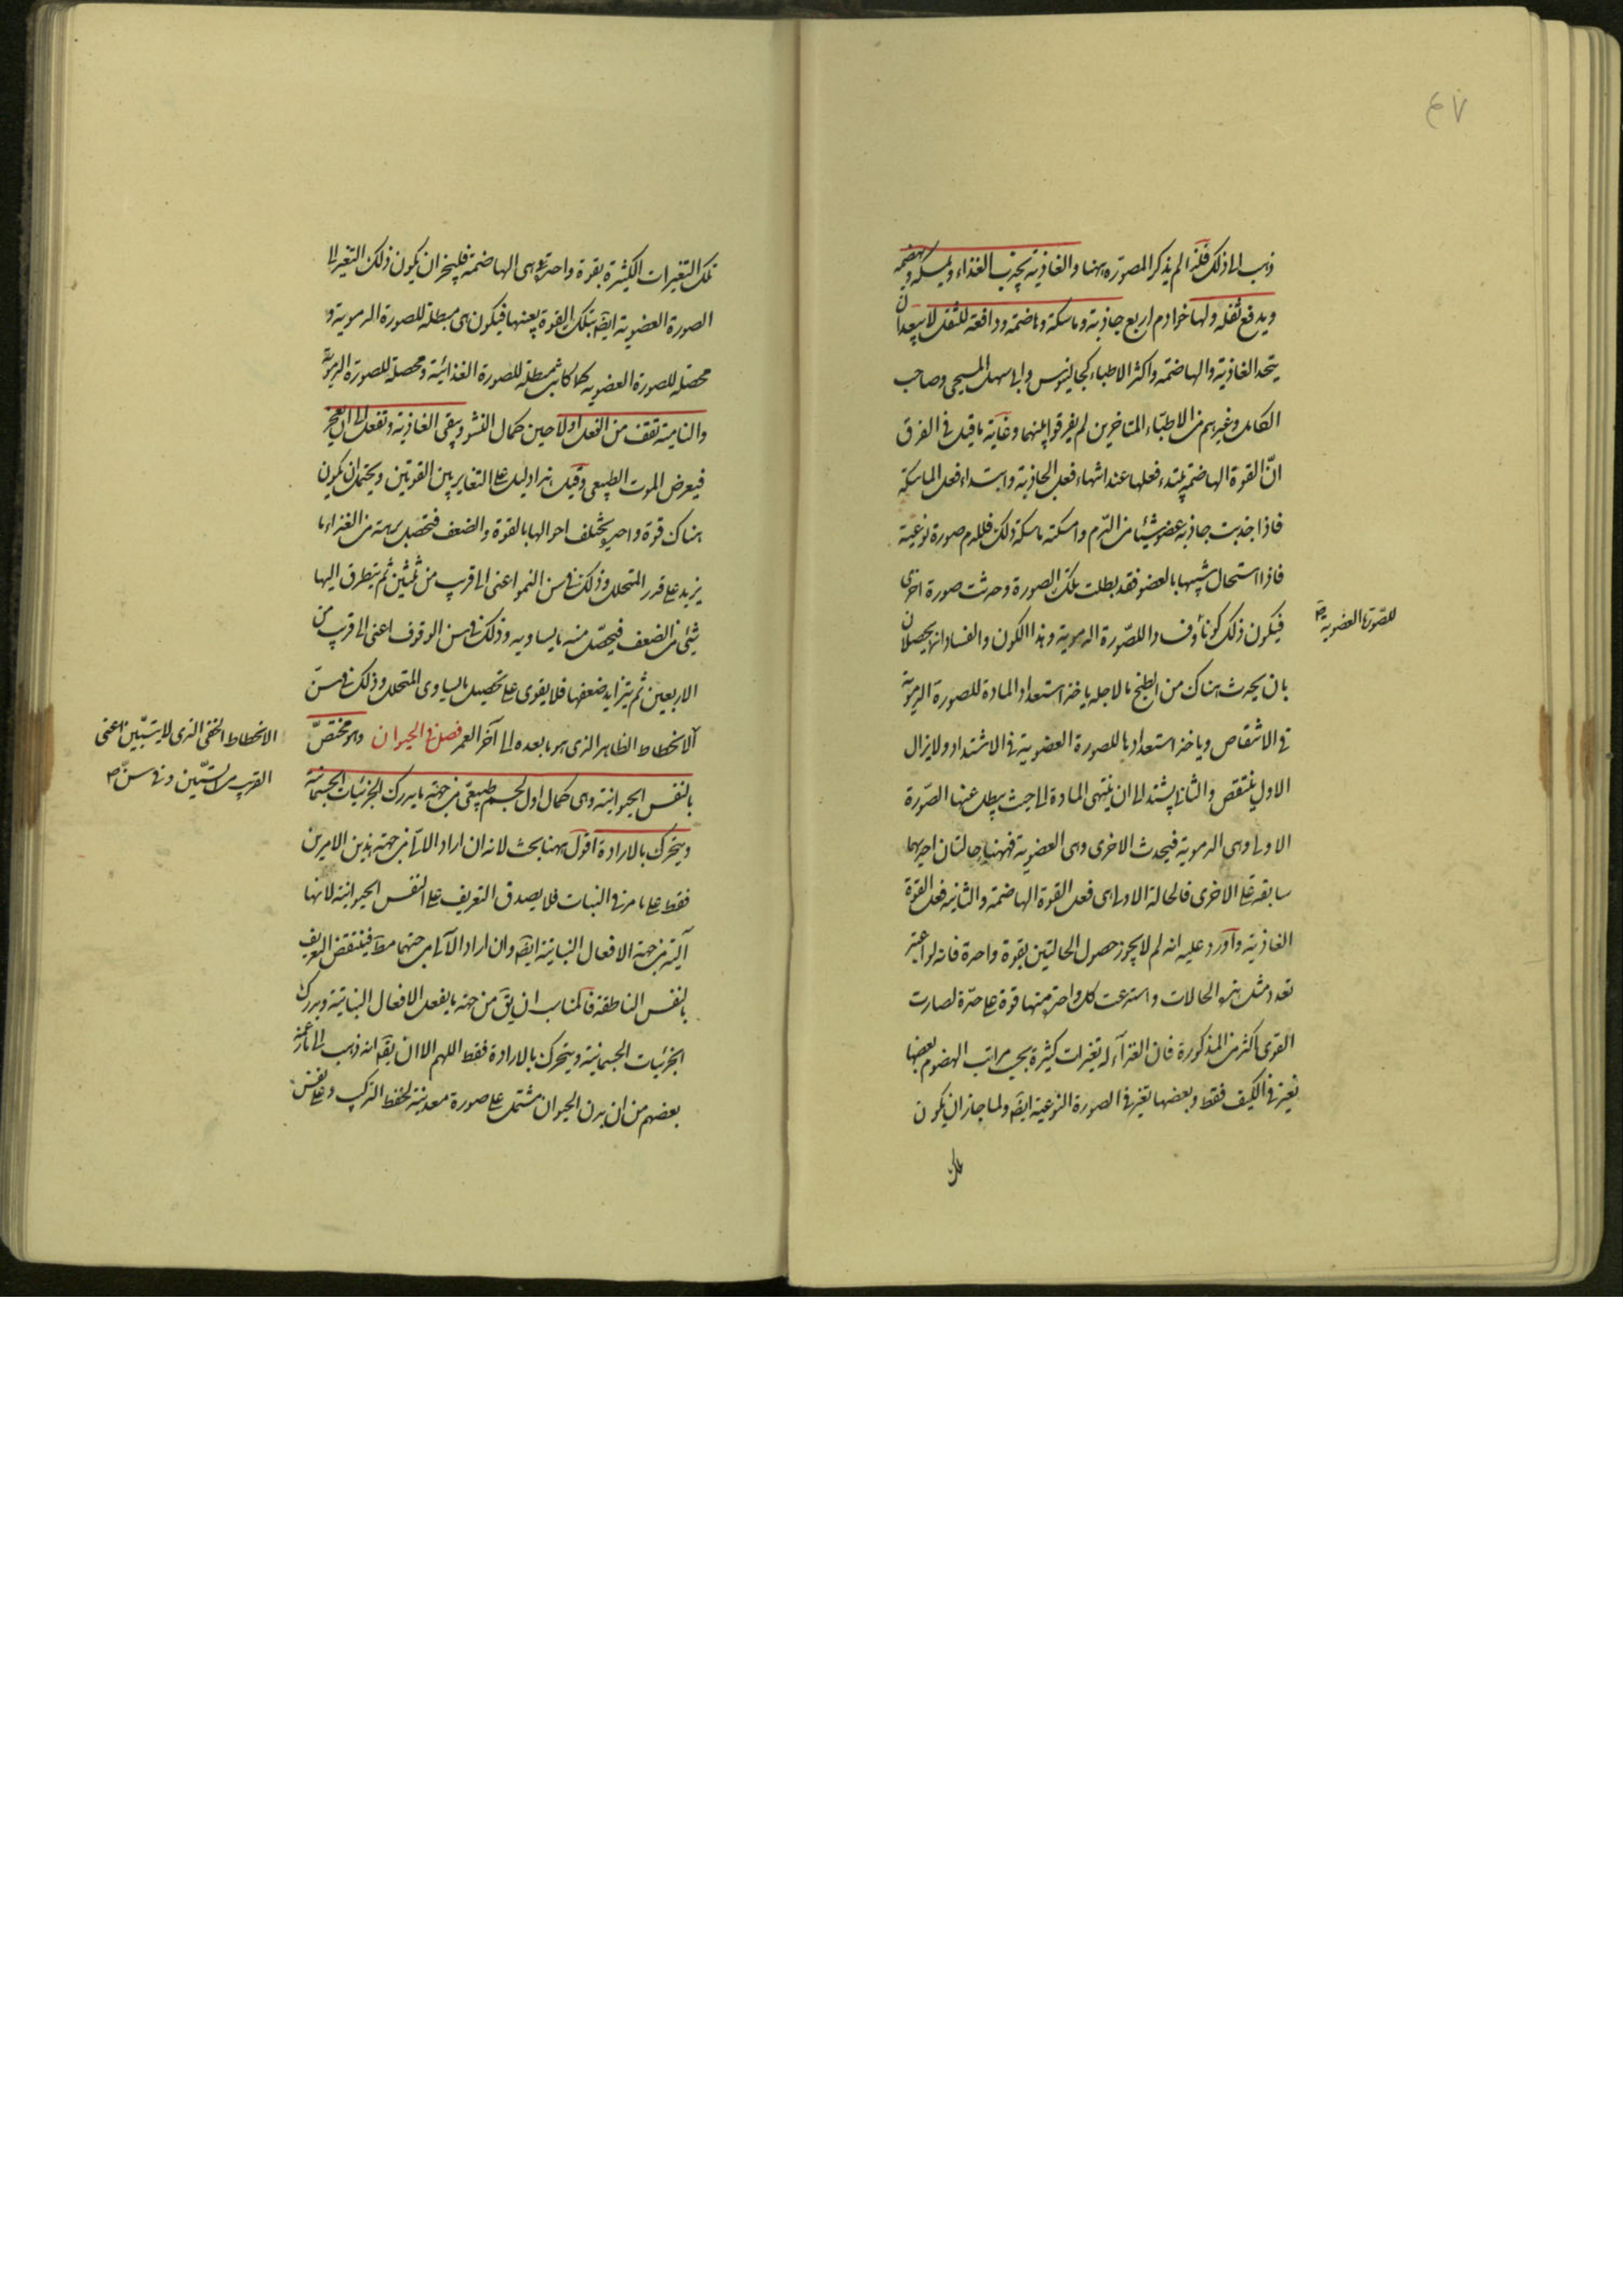 ٤٧
ذهب الى ذلك فلذا لم يذكر المصورة ههنا والغاذية تجذب الغذاء وتمسكه وتهضمه
ويدفع ثفله ولها خوادم اربع جاذبة وماسكة وهاضمة ودافعة للثفل لا يبعد ان
يتحد الغاذية والهاضمة واكثر الاطباء كجالينوس وابى سهل المسيحى وصاحب
الكامل وغيرهم من الاطباء المتاخرين لم يفرقوا بينهما وغاية ما قيل فى الفرق
انّ القوة الهاضمة يبتدء فعلها عند انتهاء فعل الجاذبة وابتداء فعل الماسكة
فاذا جذبت جاذبة عضو شيئا من الدّم وامسكته ماسكة ذلك فللدم صورة نوعية
فاذا استحال شبيها بالعضو فقد بطلت تلك الصورة وحدثت صورة اخرى
فيكون ذلك كونا وفسادا للصّورة الدموية وهذا الكون والفساد انما يحصلان
للصّورة العضوية صح
بان يحدث هناك من الطبخ ما لاجله ياخذ استعداد المادة للصورة الدموية
فى الانتقاص وياخذ استعدادها للصورة العضوية فى الاشتداد ولا يزال
الاول ينتقص والثانى يشتد الى ان ينتهى المادة الى حيث يبطل عنها الصّورة
الاولى وهى الدموية فيحدث الاخرى وهى العضوية فههنا حالتان احديهما
سابقة على الاخرى فالحالة الاولى هى فعل القوة الهاضمة والثانية فعل القوة
الغاذية واورد عليه انه لم لا يجوز حصول الحالتين بقوة واحدة فانه لو اعتبر
تعدد مثل هذه الحالات واسترعت كل واحدة منها قوة على حدّة لصارت
القوى اكثر من المذكورة فان الغذآء له تغيرات كثيرة بحسب مراتب الهضوم بعضها
تغير فى الكيف فقط وبعضها تغير فى الصورة النوعية ايضا ولما جاز ان يكون
تلك
تلك التغيرات الكثيرة بقوة واحدة وهى الهاضمة فليجز ان يكون ذلك التغير الى
الصورة العضوية ايضا بتلك القوة بعينها فيكون هى مبطلة للصورة الدموية و
محصلة للصورة العضوية كما كانت مبطلة للصورة الغذائية ومحصلة للصورة الدموية
والنامية تقف من الفعل اولا حين كمال النشو ويبقى الغاذية وتفعل الى ان تعجز
فيعرض الموت الطبيعى وقيل هذا دليل على التغاير بين القوتين ويحتمل ان يكون
هناك قوة واحدة يختلف احوالها بالقوة والضعف فتحصل برهة من الغذاء ما
يزيد على قدر المتحلل وذلك فى سن النمو اعنى الى قريب من ثلثين ثم يتطرق اليها
شئى من الضعف فيحصل منه ما يساويه وذلك فى سن الوقوف اعنى الى قريب من
الاربعين ثم يتزايد ضعفها فلا يقوى على تحصيل ما يساوى المتحلل وذلك فى سن
الانحطاط الخفى الذى لا يتبيّن اعنى
القريب من الستّين وفى سنّ صح
الانحطاط الظاهر الذى هو ما بعده الى آخر العمر فصل فى الحيوان وهو مختصّ
بالنفس الحيوانية وهى كمال اول لجسم طبيعى آلى من جهة ما يدرك الجزئيات الجسمانية
ويتحرك بالارادة اقول ههنا بحث لانه ان اراد الآلى من جهة هذين الامرين
فقط على ما مر فى النبات فلا يصدق التعريف على النفس الحيوانية لانها
آلية من جهة الافعال النباتية ايضا وان اراد الآلى من جهتهما مط فينتقض التعريف
بالنفس الناطقة فالمناسب ان يق من جهة ما يفعل الافعال النباتية ويدرك
الجزئيات الجسمانية ويتحرك بالارادة فقط اللهم الا ان يقال انه ذهب الى ما زعمه
بعضهم من ان بدن الحيوان مشتمل على صورة معدنية لحفظ التركيب وعلى نفس